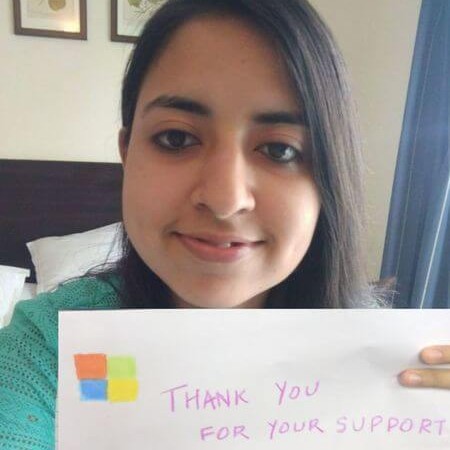 THANK YOU
FOR YOUR SUPPORT